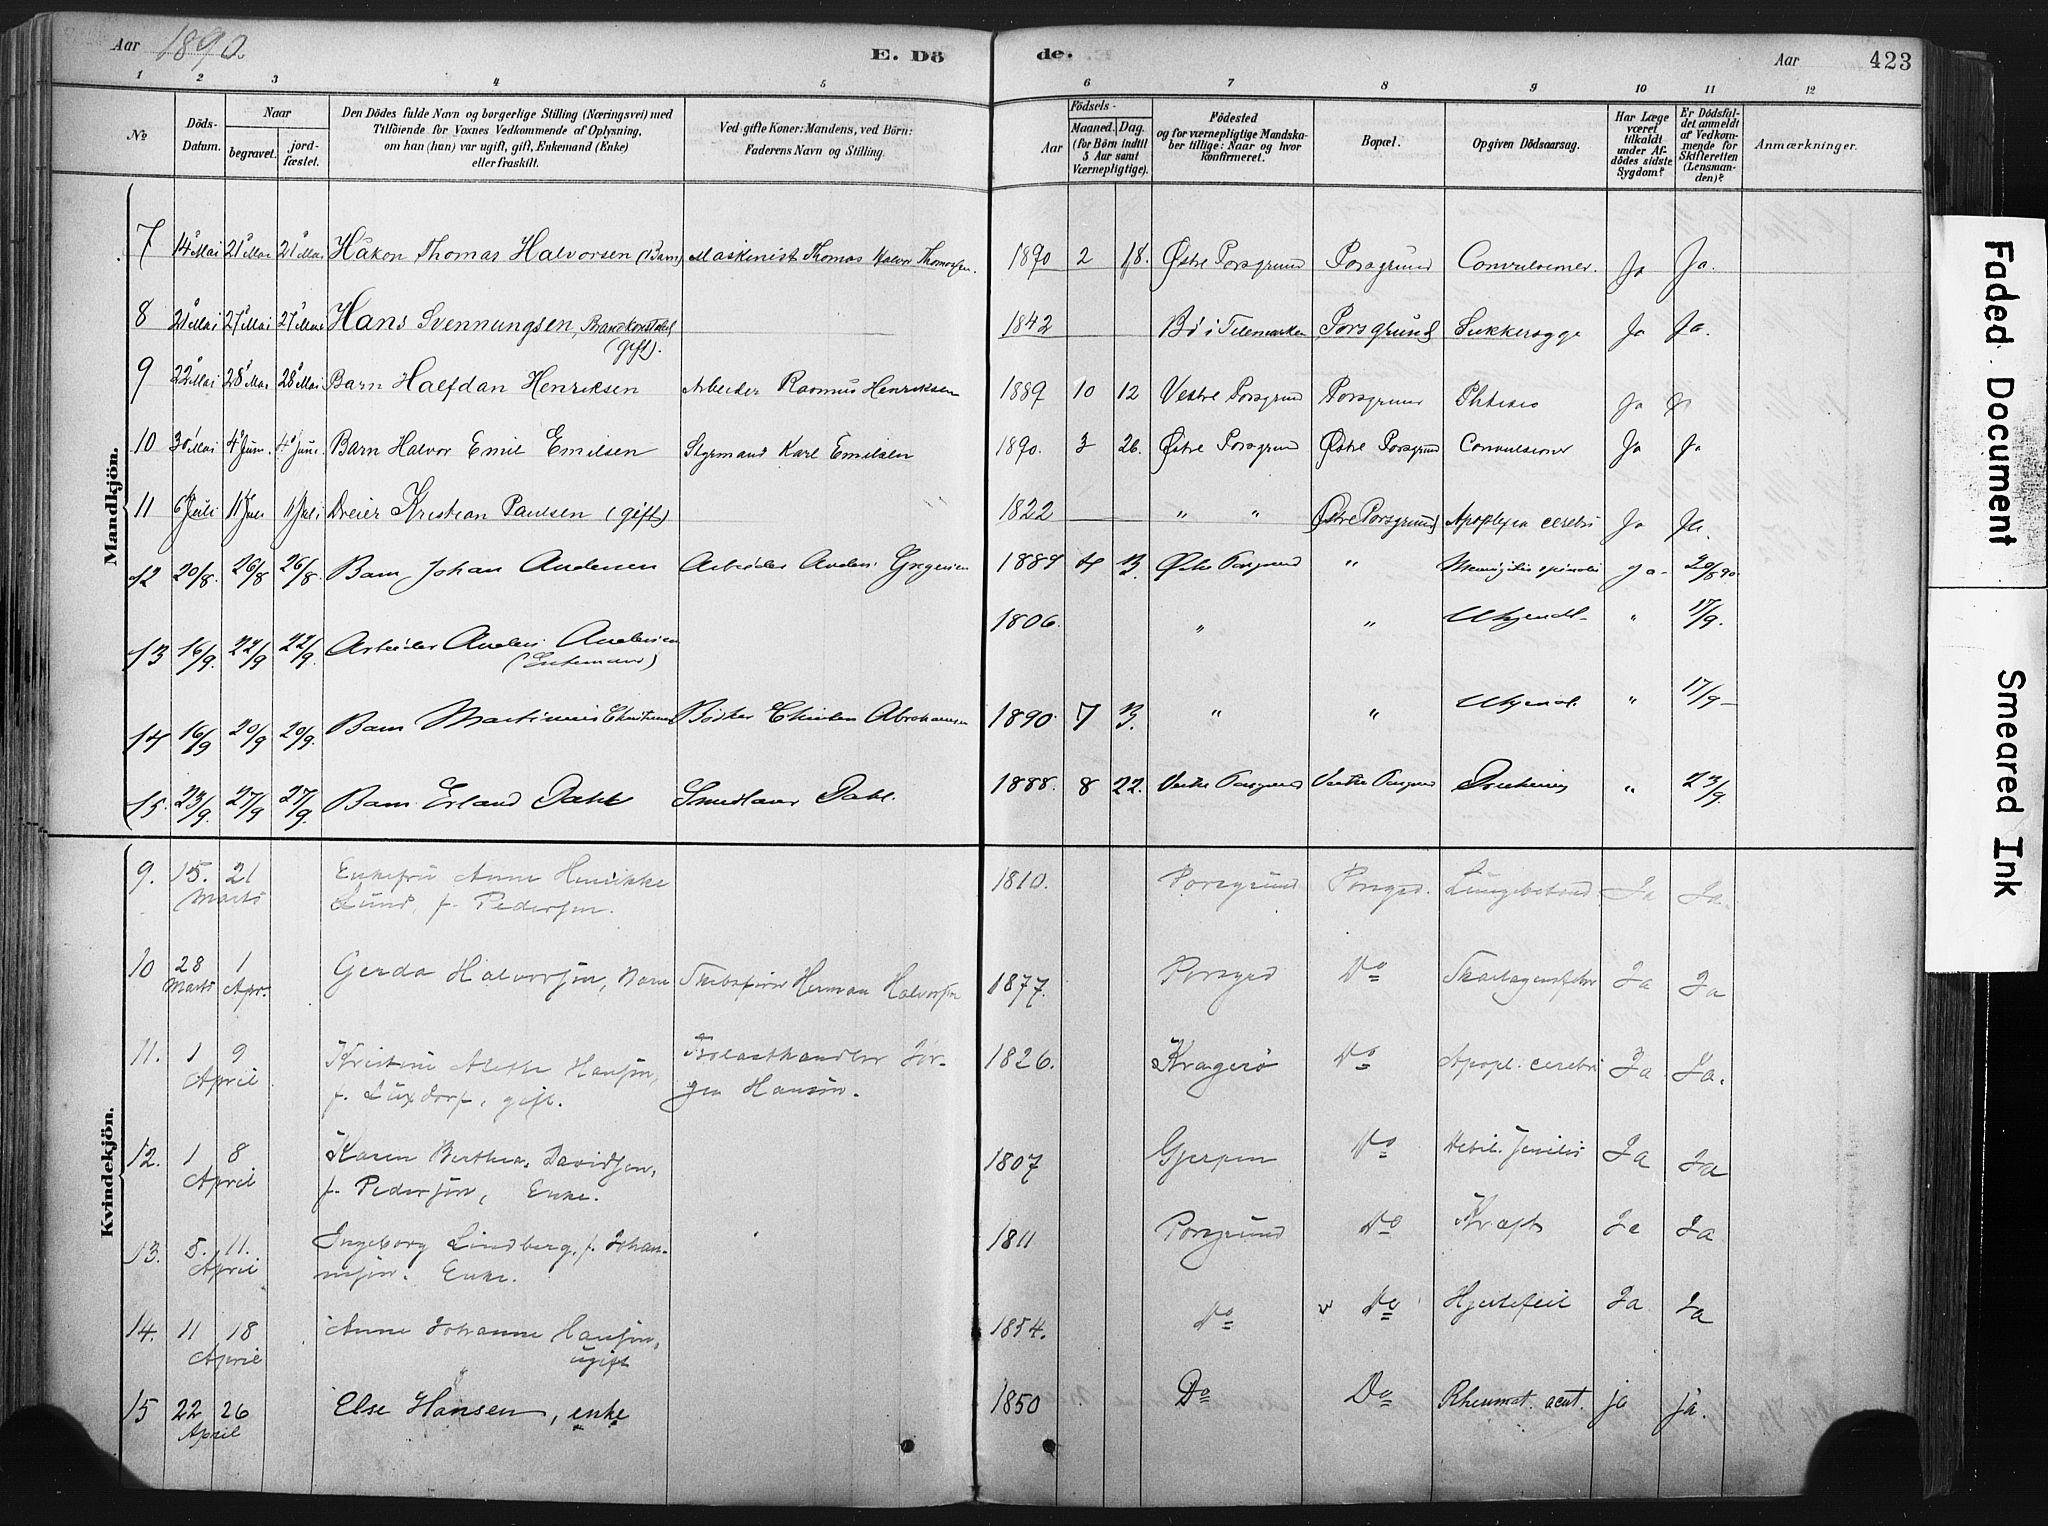 Aar 1890. E. Dö de. Aar 423
1 2 3 4 5 6 7 8 9 10 11 12
No Döds-Datum. Naar begravet. jord-fæstet. Den Dödes fulde Navn og borgerlige Stilling (Næringsvei) med Tilföiende for Voxnes Vedkommende af Oplysning, om han (hun) var ugift, gift, Enkemand (Enke) eller fraskilt. Ved gifte Koner: Mandens, ved Börn: Faderens Navn og Stilling. Födsels- Aar Maaned. Dag. (for Börn indtil 5 Aar samt Værnepligtige). Födested og for værnepligtige Mandskaber tillige: Naar og hvor Konfirmeret. Bopæl. Opgiven Dödsaarsag. Har Læge været tilkaldt under Afdödes sidste Sygdom? Er Dödsfaldet anmeldt af Vedkommende for Skifteretten (Lensmanden)? Anmærkninger.
Mandkjön.
7 14 Mai 21 Mai 21 Mai Håkon Thomas Halvorsen (Barn) Maskinist Thomas Halvor Thomassen. 1890 2 18. Østre Porsgrund Porsgrund Convulsioner. Ja Ja.
8 21 Mai 27 Mai 27 Mai Hans Svennungsen, Brandkonstabel (gift). 1842 Bø i Telemarken Porsgrund Sukkersyge Ja Ja.
9 22 Mai 28 Mai 28 Mai Barn Halfdan Henriksen Arbeider Rasmus Henriksen 1889 10 12 Vestre Porsgrund Porsgrund Phtisis Ja Ja
10 30 Mai 4 Juni 4 Juni Barn Halvor Emil Emilsen Styrmand Karl Emilsen 1890. 3 26. Østre Porsgrund Østre Porsgrund Convulsioner Ja Ja
11 6 Juli 11 Juli 11 Juli Dreier Kristian Paulsen (gift) 1822 " " Østre Porsgrund Apoplexia cerebri Ja Ja.
12 20/8. 26/8 26/8. Barn Johan Andersen Arbeider Anders Gregersen 1889 4 3. Østre Porsgrund " Meningitis spinalis ja. 20/8 90
13 16/9. 22/9 22/9. Arbeider Anders Andersen (Enkemand) 1806. " " Ukjendt. " 17/9.
14 16/9 20/9 20/9. Barn Martinius Christensen Bødker Christen Abrahamsen 1890. 7 3. " " Ukjendt. " 17/9
15. 23/9. 27/9 27/9. Barn Erland Dahl Dahl. 1888. 8 22. Vestre Porsgrund Vestre Porsgrund " 23/9.
Kvindekjön.
9. 15. 21 Marts Enkefru Anne Henrikke Lund, f. Pedersen. 1810. Porsgrund Porsgrd. Ja Ja.
10 28 Marts 1 Apr. Gerda Halvorsen, Barn Skibsfører Herman Halvorsen 1877. Porsgrd Do Skarlagensfeber Ja Ja
11. 1 9 April Kristine Alethe Hansen, f. Luxdorf, gift. Trælasthandler Jørgen Hansen. 1826. Kragerø Do Apopl. cerebri Ja Ja.
12. 1 8 April Karen Berthea Davidsen, f. Pedersen, Enke. 1807 Gjerpen Do Debil. senilis Ja Ja
13. 5. 11. April Ingeborg Lindberg, f. Johannesen. Enke. 1811 Porsgrund Do Kræft Ja Ja
14. 11 18 April Anne Johanne Hansen, ugift 1854. Do Do Hjertefeil Ja Ja
15 22 26 April Else Hansen, enke 1850 Do Do Rheumat. acut. ja ja.
Faded Document
Smeared Ink